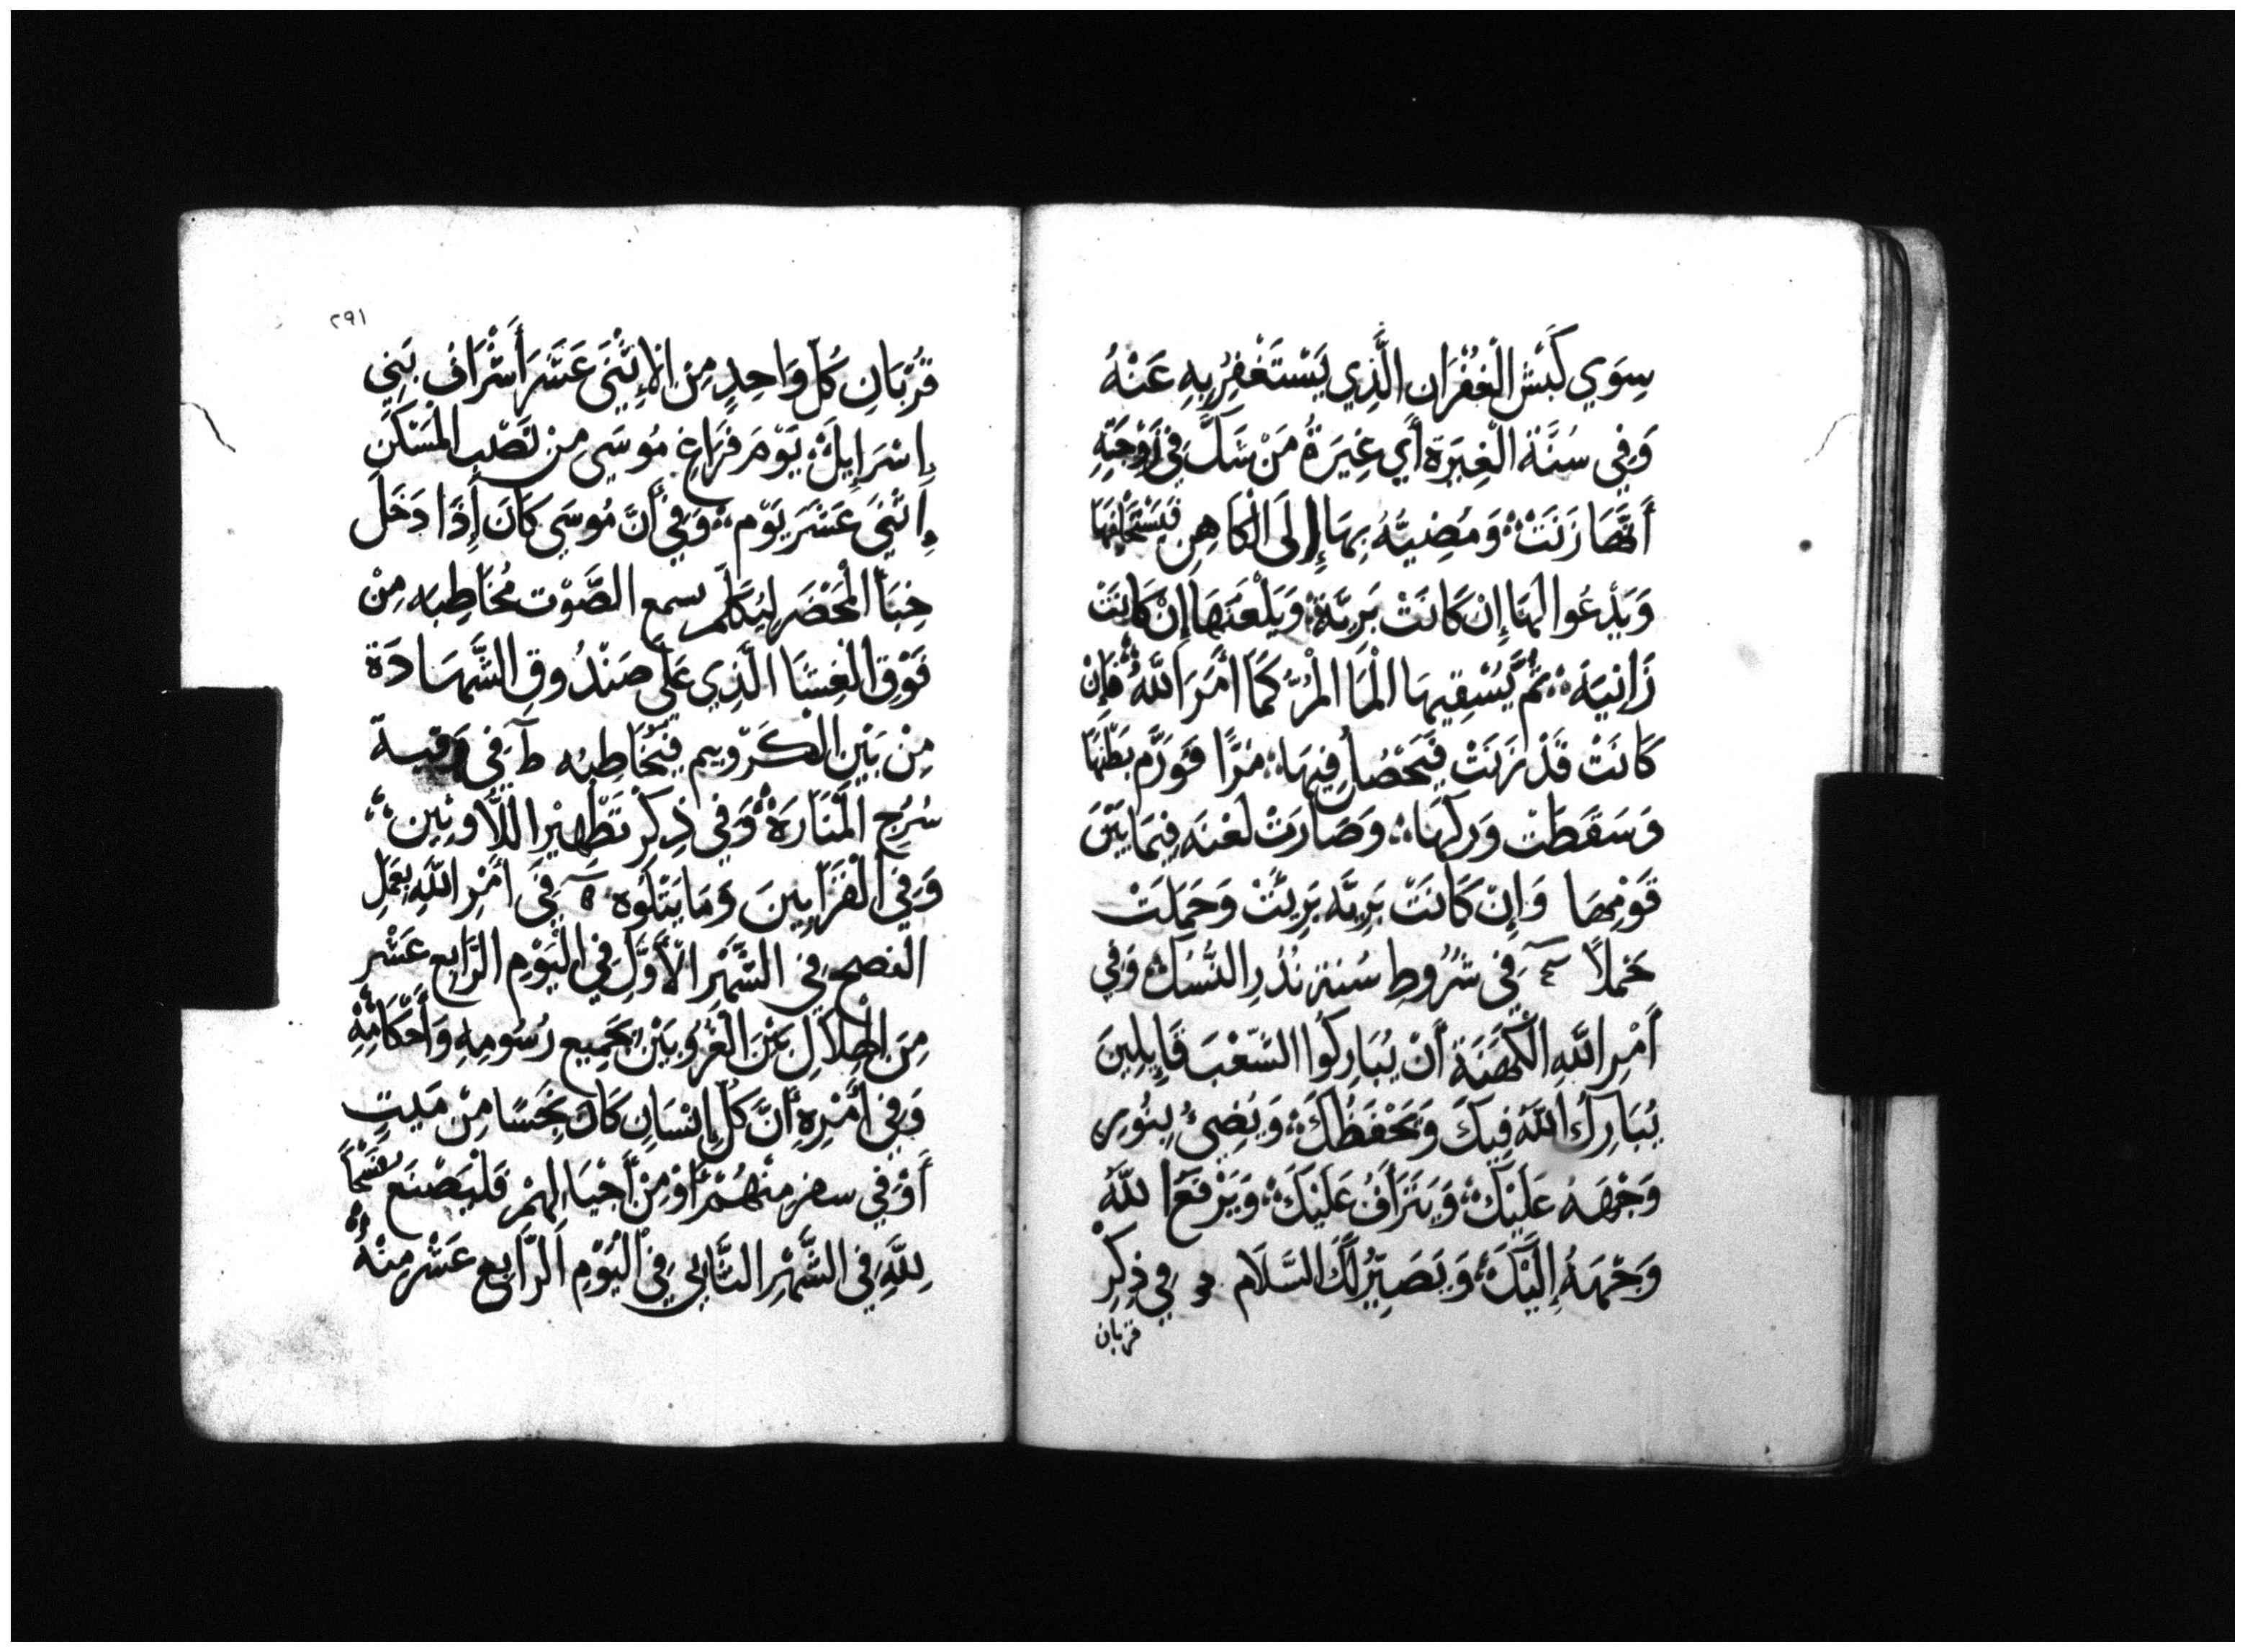 سِوَي كَبَش الْغُفْرَان الَّذِي يَسْتَغْفِرُ بِهِ عَنْهُ
وَفِي سُنَّة الْغِيرَة أَي غِيَرةُ مَنْ شَكَّ فِي زَوْجَتِهِ
أَنَّهَا زَنَتْ؞ وَمُضِيُّهُ بِهَا إِلَى الْكَاهِنِ فَيَسْتَحْلِفهَا
وَيَدْعُوا لَهَا إِنْ كَانَتْ بَرِيَّة؞ وَيَلْعَنهَا إِنْ كَانَتْ
زَانِيَه؞ ثُمَّ يَسْقِيهَا الْمَا الْمُرّ كَمَا أَمَرَ اللَّهُ؞ فَإِنْ
كَانَتْ قَدْ زَنَتْ فَيَحْصُل فِيهَا؞ مُرًّا فَوَرَّم بَطْنهَا
وَسَقَطَتْ وَركهَا؞ وَصَارَتْ لَعْنَه فِيمَا بَيْنَ
قَوْمِهَا وَإِنْ كَانَتْ بَرِيَّه بَرِيَتْ وَحَمَلَتْ
حَملاً فِي شُرُوطِ سُنة نُذُرِ النُّسُك؞ وَفِي
أَمْرِ اللَّهِ الْكَهَنَة أَنْ يُبَارِكُوا الشَّعْبَ قَايِلِينَ
يُبَارِكُ اللَّهُ فِيكَ وَيَحْفَظُكَ؞ وَيُضِيُ بِنُورِ
وَجْهَهُ عَلَيْكَ؞ وَيَتَرَأَفُ عَلَيْكَ؞ وَيَرْفَع اللَّهُ
وَجْهَهُ إِلَيْكَ؞ وَيَصَيِّرُ لَكَ السَّلَام فِي ذِكْرِ
قربان
٢٩١
قُرْبَانِ كُلّ وَاحِدٍ مِنِ الإِثْنَيْ عَشَر أَشْرَاف بَنِي
إِسْرَايِلَ؞ يَوْمَ فَرَاغِ مُوسَي مِنْ نَصْبِ الْمَسْكَنِ
إِثْنَيْ عَشَرَ يَوْم؞ وَفِي أَنَّ مُوسَي كَانَ إِذَا دَخَلَ
خِبَأ الْمَحْضَر لِيُكَلَّم سمع الصَّوْت مُخَاطِبه مِنْ
فَوْقِ الْغِشَا الَّذِي عَلَى صَنْدُوقِ الشَّهَادَة
مِنْ بَيْنِ الْكَرّوبيم فَيُخَاطِبُه فِي وقيد
سُرُج الْمَنَارَة؞ وَفِي ذِكْرِ تَطْهِير اللَّاوِيِّين؞
وَفِي الْقَرَابِينَ وَمَا يَتْلُوه فِي أَمْرِ اللَّهِ بِعَمَلِ
الفصح فِي الشَّهْرِ الْأَوَّلِ فِي الْيَوْمِ الرَّابِع عَشْر
مِنَ الْهِلَالِ بَيْنَ الْغُرُوبَيْنِ بِجَمِيعِ رُسُومِهِ وَأَحْكَامِهِ؞
وَفِي أَمْرِهِ أَنَّ كُلّ إِنْسَانِ كَانَ نَجِسًا مِنْ مَيِّتٍ
أَوْ فِي سفر مِنْهُمْ أَوْ مِنْ أَجْيَالِهِمْ فَلْيَصْنَع فَسْحًا
لِلَّهِ فِي الشَّهْرِ الثَّانِي فِي الْيَوْمِ الرَّابِع عَشْر مِنْهُ؞